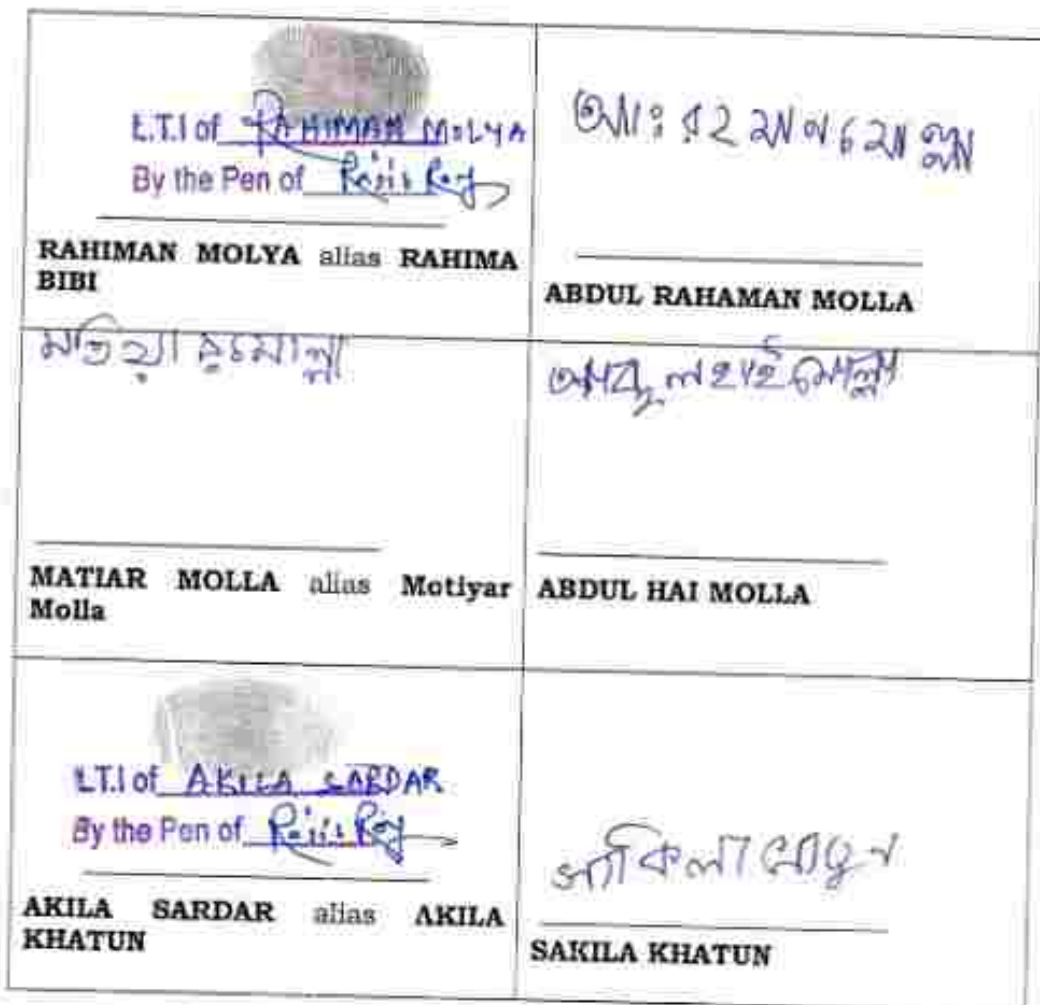 L.T.I of RAHIMAN MOLYA
By the Pen of
RAHIMAN MOLYA alias RAHIMA
BIBI
আঃ রহমান মোল্লা
ABDUL RAHAMAN MOLLA
মতিয়ার মোল্লা
MATIAR MOLLA alias Motiyar
Molla
আব্দুল হাই মোল্লা
ABDUL HAI MOLLA
L.T.I of AKILA SARDAR
By the Pen of
AKILA SARDAR alias AKILA
KHATUN
সাকিলা খাতুন
SAKILA KHATUN